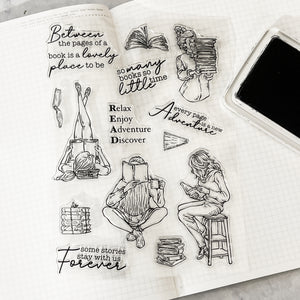 Between
the pages of a
book is a lovely
place to be
so many
books so
little time
Relax
Enjoy
Adventure
Discover
R
E
A
D
every page
is a new
Adventure
some stories
stay with us
Forever